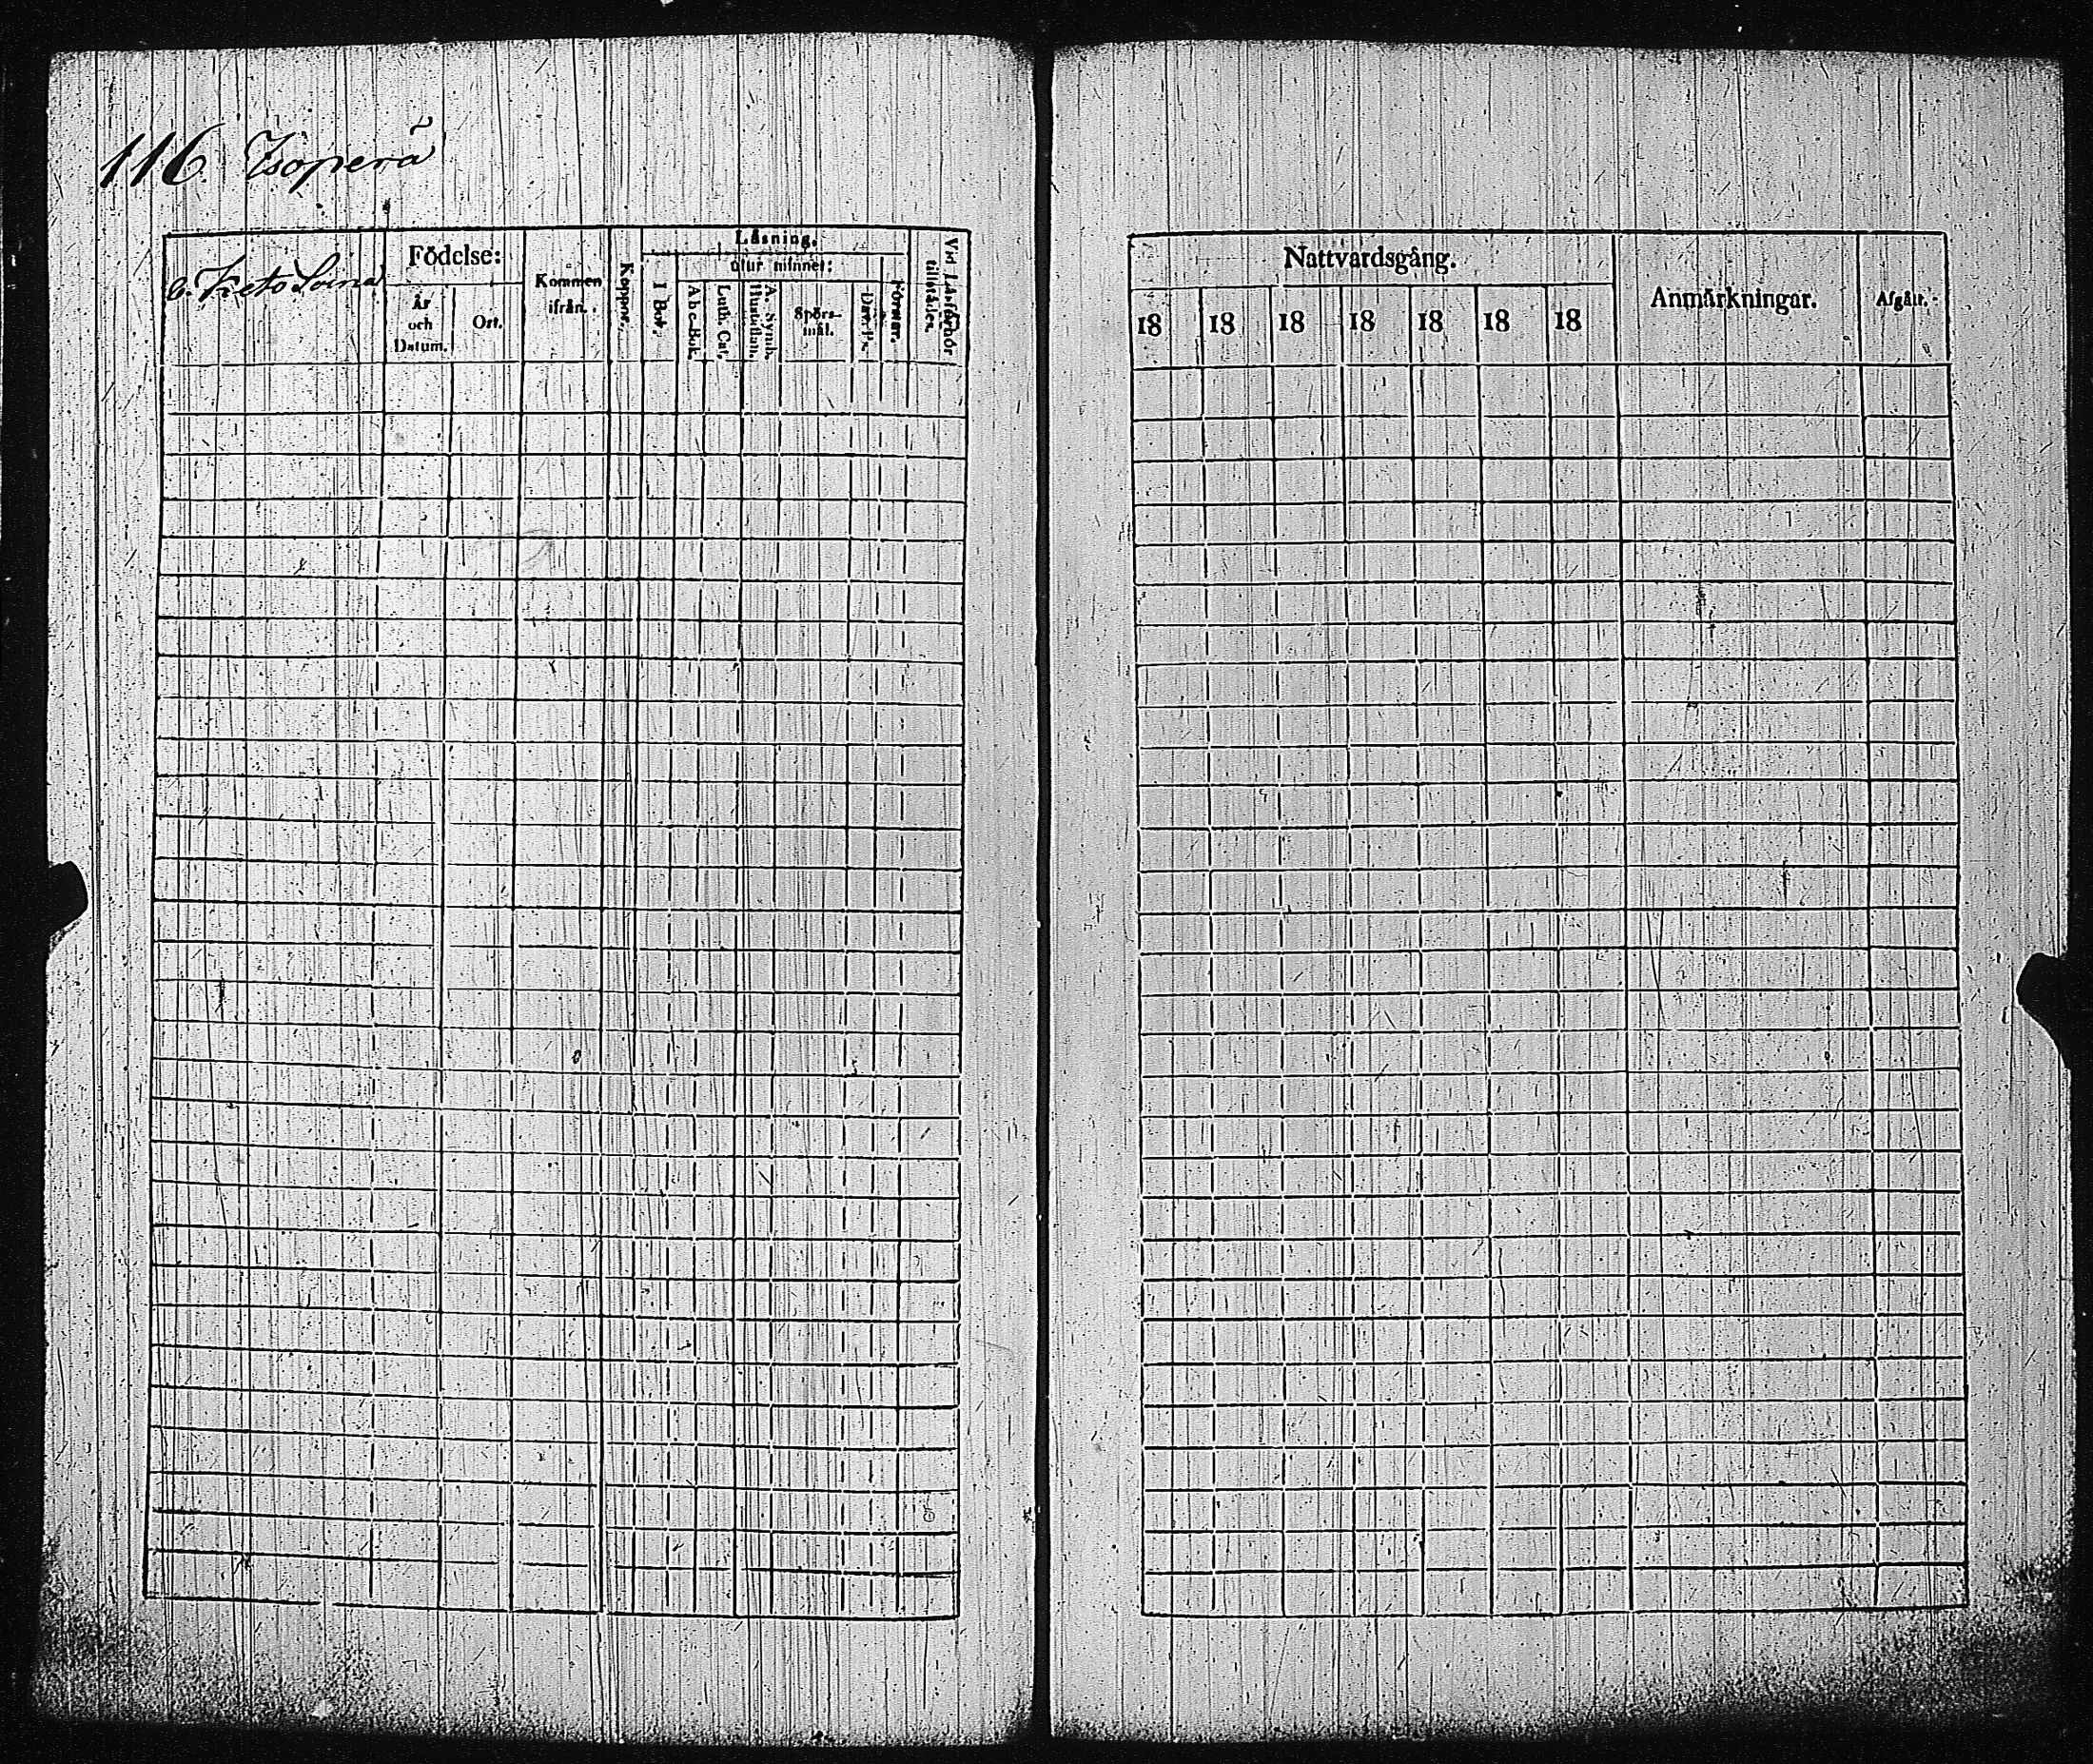 116. Isoperä
6. Kreto Soini
Födelse:
År och Datum.
Ort.
Kommen ifrån.
Koppor.
Läsning.
I Bok.
utur minnet:
A b c-Bok.
Luth. Cat.
A. Symb. Hustaflan.
Spörsmål.
Dav. Ps.
Förstår.
Vid Läsförhör tillstädes.
Nattvardsgång.
18 18 18 18 18 18 18
Anmärkningar.
Afgått.